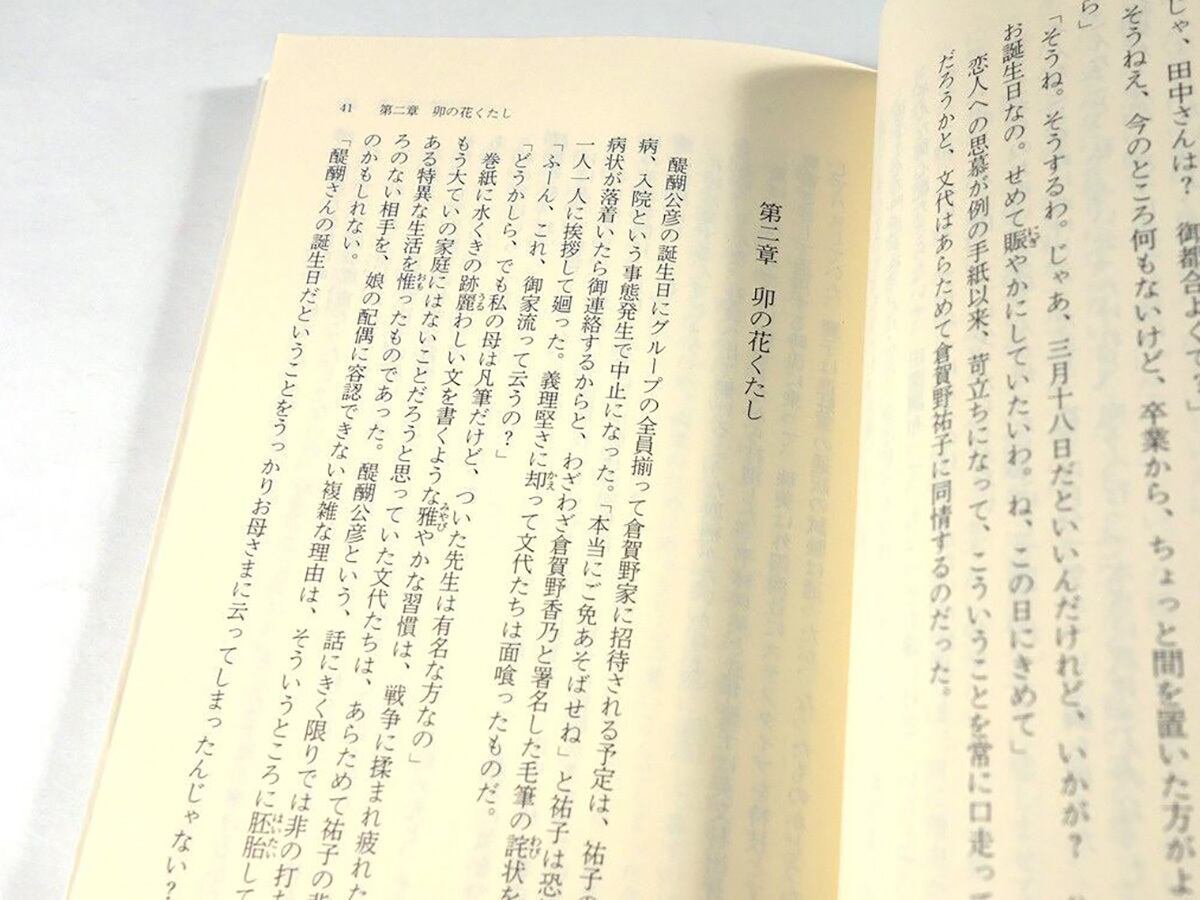 じゃ、田中さんは？　御都合よくて？」
そうねえ、今のところ何もないけど、卒業から、ちょっと間を置いた方がよ
ら」
「そうね。そうするわ。じゃあ、三月十八日だといいんだけれど、いかが？
お誕生日なの。せめて賑やかにしていたいわ。ね、この日にきめて」
恋人への思慕が例の手紙以来、苛立ちになって、こういうことを常に口走って
だろうかと、文代はあらためて倉賀野祐子に同情するのだった。
41　第二章　卯の花くたし
第二章　卯の花くたし
醍醐公彦の誕生日にグループの全員揃って倉賀野家に招待される予定は、祐子の
病、入院という事態発生で中止になった。「本当にご免あそばせね」と祐子は恐
病状が落着いたら御連絡するからと、わざわざ倉賀野香乃と署名した毛筆の詫状を
一人一人に挨拶して廻った。義理堅さに却って文代たちは面喰ったものだ。
「ふーん、これ、御家流って云うの？」
「どうかしら、でも私の母は凡筆だけど、ついた先生は有名な方なの」
巻紙に水くきの跡麗わしい文を書くような雅やかな習慣は、戦争に揉まれ疲れた
もう大ていの家庭にはないことだろうと思っていた文代たちは、あらためて祐子の
ある特異な生活を惟ったものであった。醍醐公彦という、話にきく限りでは非の打
ろのない相手を、娘の配偶に容認できない複雑な理由は、そういうところに胚胎して
のかもしれない。
「醍醐さんの誕生日だということをうっかりお母さまに云ってしまったんじゃない？